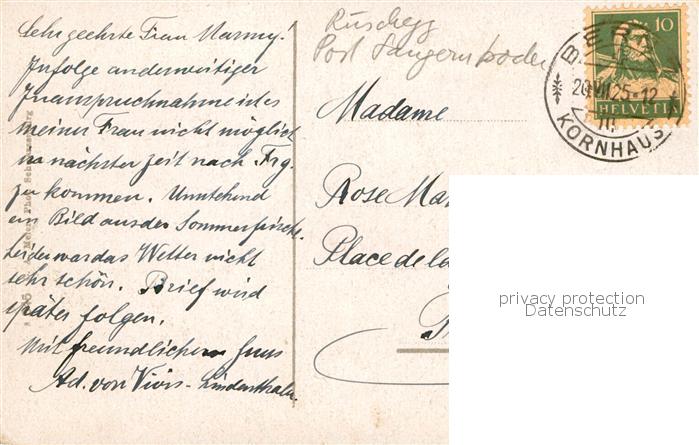 Sehr geehrte Frau Marmy!
Infolge anderweitiger
Inanspruchnahme ist es
meiner Frau nicht möglich
in nächster Zeit nach Frg.
zu kommen. Umstehend
ein Bild aus der Sommerfrische.
Leider war das Wetter nicht
sehr schön. Brief wird
später folgen.
Mit freundlichem Gruss
Ad. von Vivis-
Rüschegg
Post Sangernboden
Madame
Rose Mar
Place de la
BERN
20.VII.25-12
III
KORNHAUS
10
HELVETIA
privacy protection
Datenschutz